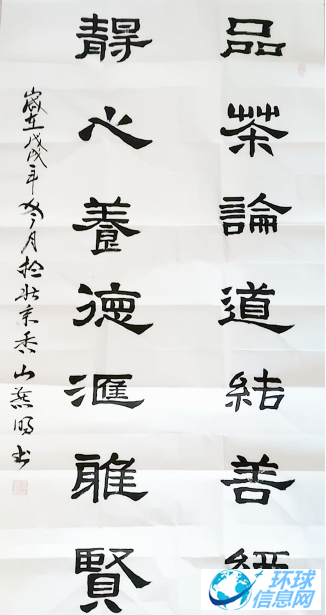 品茶論道結善
靜心養德滙雅賢
歲在戊戌年冬月於北京香山燕明书
环球
信息网